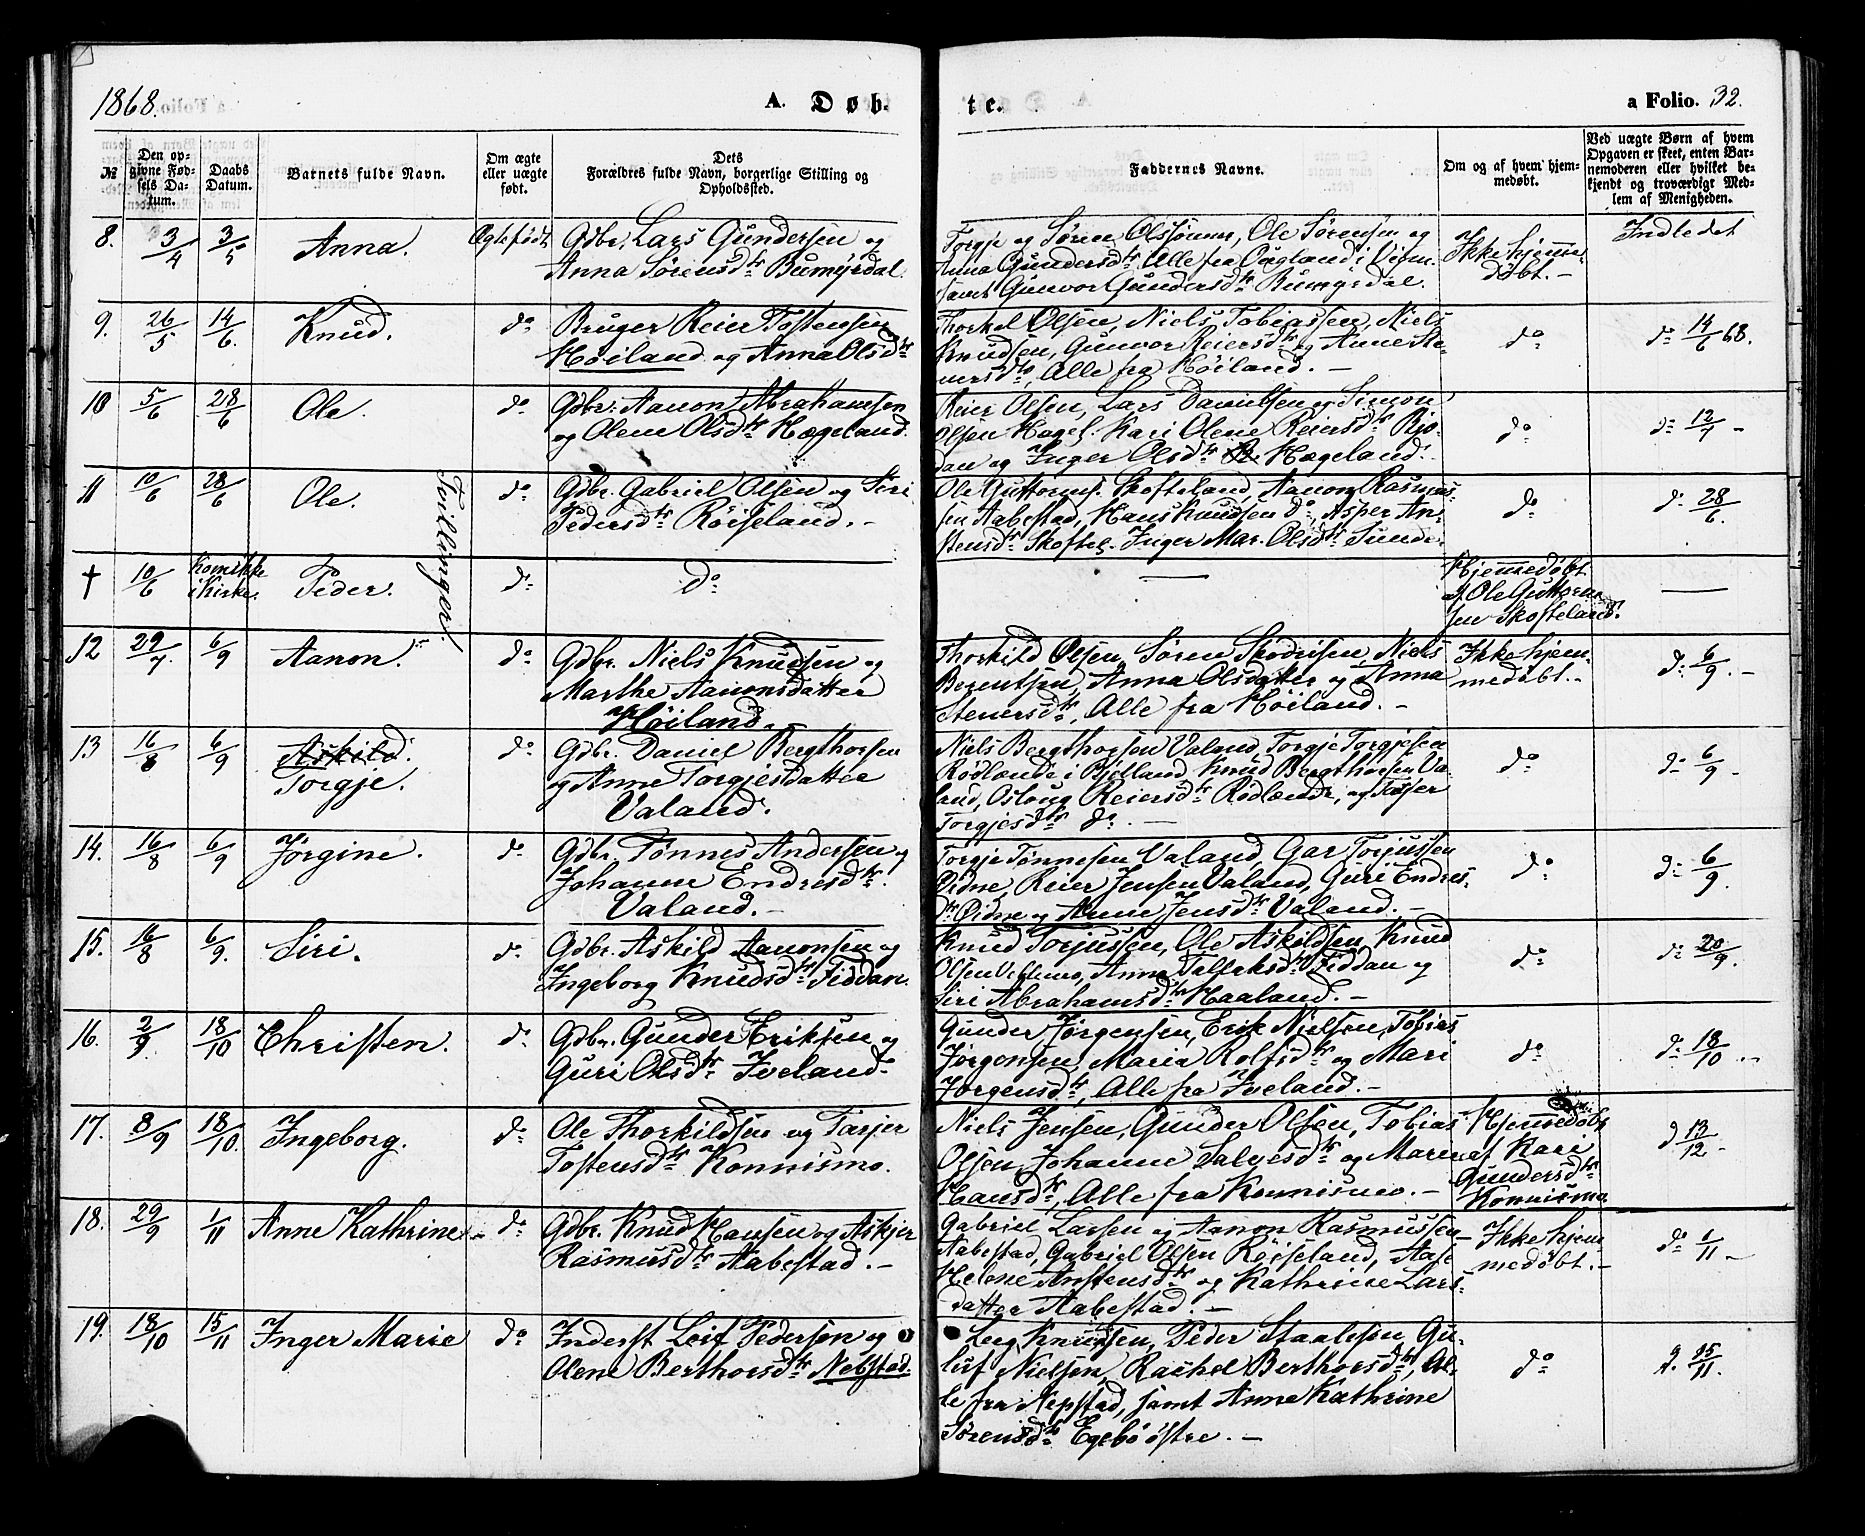 1868.
A. Døb-
te.
a Folio. 32.
№
Den op-
givne Fød-
sels Da-
tum.
Daabs
Datum.
Barnets fulde Navn.
Om ægte
eller uægte
født.
Dets
Forældres fulde Navn, borgerlige Stilling og
Opholdssted.
Faddernes Navne.
Om og af hvem hjem-
medøbt.
Ved uægte Børn af hvem
Opgaven er skeet, enten Bar-
nemoderen eller hvilket be-
kjendt og troværdigt Med-
lem af Menigheden.
8. 3/4 3/5 Anna. Ægtefødt
Gdbr. Lars Gundersen og
Anna Sørensdtr Bumyrdal.
Torgje og Søren Olssønner, Ole Sørensen og
Anna Gundersdtr Alle fra
samt Gunvor Gundersdtr Bumyrdal.
Ikke hjemme-
døbt.-
Indledet
9. 26/5 14/6. Knud. do
Bruger Reier Tostensen
Høiland og Anna Olsdtr
Thorkel Olsen, Niels Tobiassen, Niels
Knudsen, Gunvor Reiersdtr og Anne Ste-
nersdtr, Alle fra Høiland. -
do
do 14/6 68.
10 5/6 28/6 Ole. do
Gdbr. Aanon Abrahamsen
og Olene Olsdtr Hægeland.
Reier Olsen, Lars Danielsen og Simon
Olsen Hægel. Kari Olene Reiersdtr Rjo-
dan og Inger Olsdtr Hægeland.
do
do 12/7 -
11 10/6 28/6 Ole. do
Tvillinger.
Gdbr. Gabriel Olsen og Siri
Pedersdtr Røiseland. -
Ole Guttorms. Skofteland, Aanon Rasmus-
sen Aabestad, Hans Knudsen do, Asper An-
stensdtr Skoftel. Inger Mar. Olsdtr Sunde.
do
do 28/6.
† 10/6 Kom ikke
i Kirke. Peder. do
do
—
Hjemmedøbt
af Ole Guttorm-
sen Skofteland.
—
12 29/7. 6/9 Aanon. do
Gdbr. Niels Knudsen og
Marthe Aanonsdatter
Høiland.
Thorkild Olsen, Søren Niels
Berentsen, Anna Olsdatter og Anna
Stenersdtr, Alle fra Høiland. -
Ikke hjem-
medøbt.-
do 6/9. -
13 16/8 6/9 Askild.
Torgje. do
Gdbr. Daniel Bergthorsen
og Anne Torgjesdatter
Valand.
Niels Bergthorsen Valand, Torgje Torgjesen
Rødlende i Bjelland, Knud Bergthorsen Va-
land, Oslaug Reiersdtr Rødlende, og
Torgjesdtr do. -
do
do 6/9 -
14. 16/8 6/9 Jørgine. do
Gdbr. Tønnes Andersen og
Johanne Endresdtr.
Valand. -
Torgje Tønnesen Valand, Gar Torjussen
Øidne, Reier Jensen Valand, Guri Endres-
dtr Øidne og Anne Jensdtr Valand. -
do
do 6/9.
15. 16/8 6/9. Siri. do
Gdbr. Askild Aanonsen og
Ingeborg Knudsdtr Fiddan.
Knud Torjussen, Ole Askildsen, Knud
Olsen Anna Tallaksdtr Fiddan og
Siri Abrahamsdtr Haaland. -
do
do 20/9.
16. 2/9. 18/10 Christen. do
Gdbr. Gunder Eriksen og
Guri Olsdtr Iveland.
Gunder Jørgensen, Erik Nielsen, Tobias
Jørgensen, Maria Rolfsdtr og Mari
Jørgensdtr, Alle fra Iveland. -
do
do 18/10 -
17. 8/9 18/10. Ingeborg. do
Ole Thorkildsen og Tarjer
Tostensdtr Konnismo.
Niels Jensen, Gunder Olsen, Tobias
Olsen, Johanne Salvesdtr og Maren
Hansdtr, Alle fra Konnismo. -
Hjemmedøbt
af Kari
Gundersdtr
Konnismo
d 13/12 -
18. 29/9 1/11 Anne Kathrine. do
Gdbr. Knud Hansen og Askjer
Rasmusdtr Aabestad. -
Gabriel Larsen og Aanon Rasmussen
Aabestad, Gabriel Olsen Røiseland, Aase
Helene Anstensdtr og Kathrine Lars-
datter Aabestad. -
Ikke hjem-
medøbt. -
do 1/11 -
19. 18/10 15/11 Inger Marie do
Inderst Leif Pedersen og
Olene Berthorsdtr Nebstad.
Knudsen, Peder Staalesen, Gu-
luf Nielsen, Rachel Berthorsdtr, Al-
le fra Nepstad, samt Anne Kathrine
Sørensdtr Egebø østre. -
do
d. 15/11.